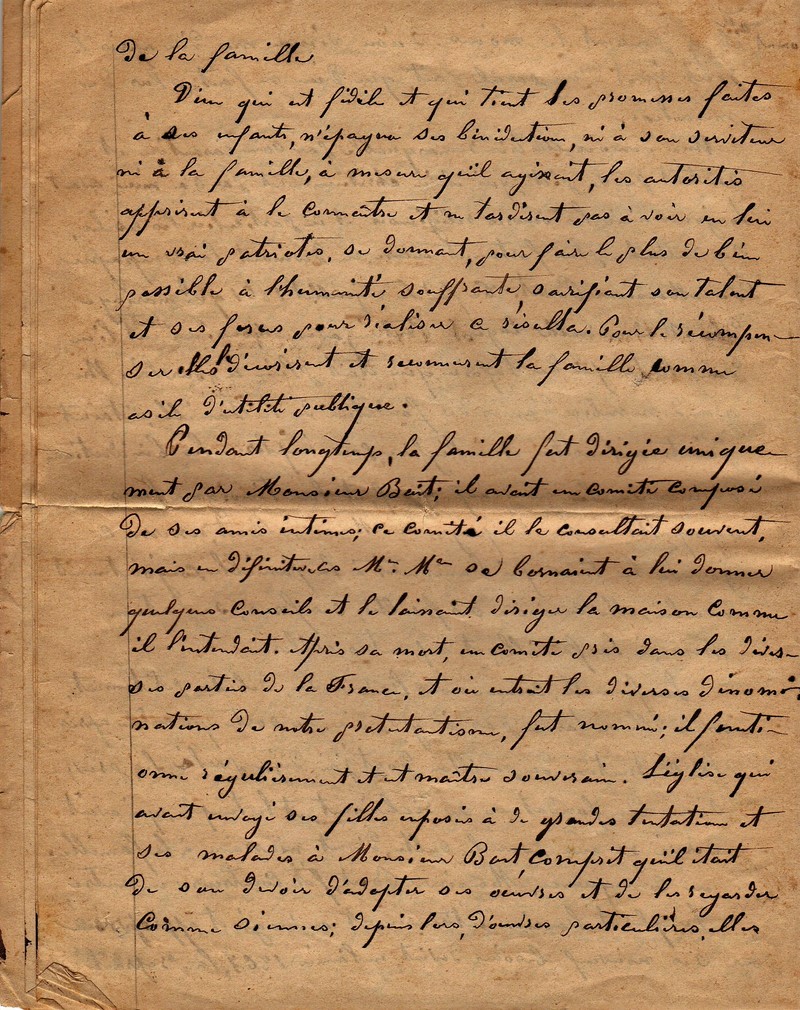 De la famille
Dieu qui est fidèle et qui tient ses promesses faites
à ses enfants, n'épagna ses bénédictions, ni à son serviteur
ni à la famille, à mesure qu'il agissait, les autorités
apprirent à le connaître et ne tardèrent pas à voir en lui
un vrai patriotes, se donnant, pour faire le plus de bien
possible à l'humanité souffrante, sacrifiant son talent
et ses forces pour réaliser ce résulta. Pour le récompen-
ser elles le décorèrent et reconnurent la famille comme
asile d'utilité publique.
Pendant longtemps, la famille fut dirigée unique-
ment par Monsieur Bost; il avait un comité composé
de ses amis intimes; ce comité il le consultait souvent,
mais en définitive ces Mrs. Mrs se bornaient à lui donner
quelques conseils et le laissant diriger la maison comme
il l'entendait. Après sa mort, un comité pris dans les diver-
ses parties de la France, et où entrait les diverses dénomi-
nations de notre protestantisme, fut nommé; il foncti-
onne régulièrement et est maître souverain. L'église qui
avait envoyé ses filles exposés à de grandes tentations et
ses malades à Monsieur Bost comprit qu'il était
de son devoir d'adopter ses oeuvres et de les regarder
comme siennes; depuis lors, d'oeuvres particulières, elles